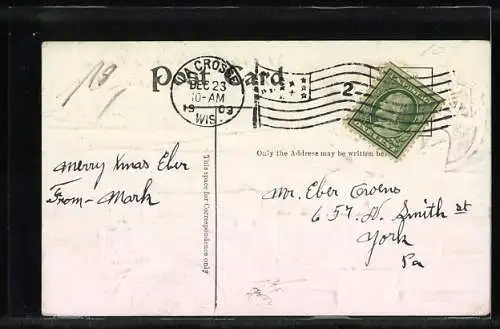 18
Post Card
LA CROSSE
DEC 23
10-AM
1909
WIS.
2
Only the Address may be written here.
This space for Correspondence only
Merry Xmas Eber
From - Mark
Mr. Eber Owens
657 N. Smith st
York
Pa